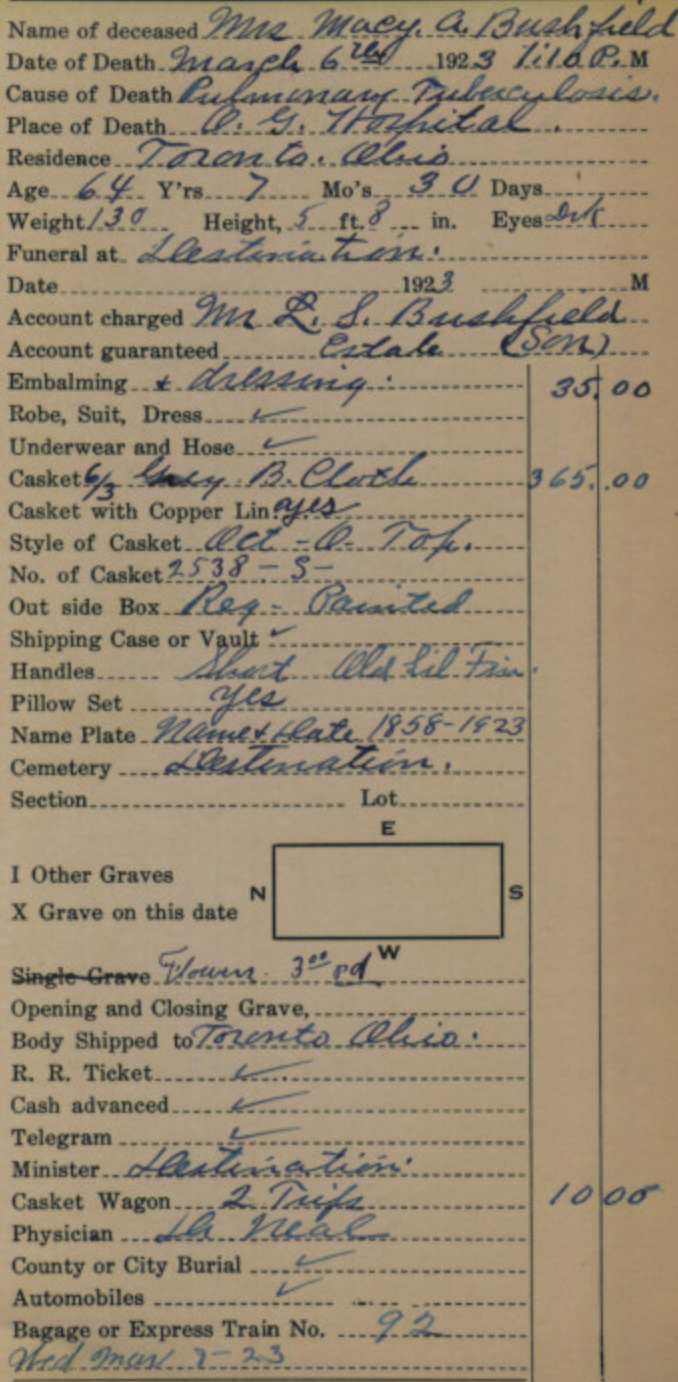 Name of deceased Mrs Macy. A. Bushfield
Date of Death March 6 1923 1:10 P. M
Cause of Death Pulmonary Tuberculosis.
Place of Death O. G. Hospital.
Residence Toronto. Ohio
Age 64 Y'rs 7 Mo's 30 Days
Weight 130 Height, 5 ft. 8 in. Eyes Drk
Funeral at Destination.
Date 1923 M
Account charged Mr L. S. Bushfield
Account guaranteed Estate (Son)
Embalming & dressing. 35.00
Robe, Suit, Dress ✓
Underwear and Hose ✓
Casket 6/3 Grey B. Cloth 365.00
Casket with Copper Lin. yes
Style of Casket Oct - O. Top.
No. of Casket 2538 - S -
Out side Box Reg - Painted
Shipping Case or Vault ✓
Handles Short Old Sil Fin.
Pillow Set yes
Name Plate Name & Date 1858-1923
Cemetery Destination.
Section Lot
E
I Other Graves
N S
X Grave on this date
W
Single Grave Flowers 3.00 pd
Opening and Closing Grave,
Body Shipped to Toronto Ohio.
R. R. Ticket ✓
Cash advanced ✓
Telegram ✓
Minister Destination.
Casket Wagon 2 Trips 10 00
Physician Dr Neal
County or City Burial ✓
Automobiles ✓
Bagage or Express Train No. 92
Wed Mar 7-23